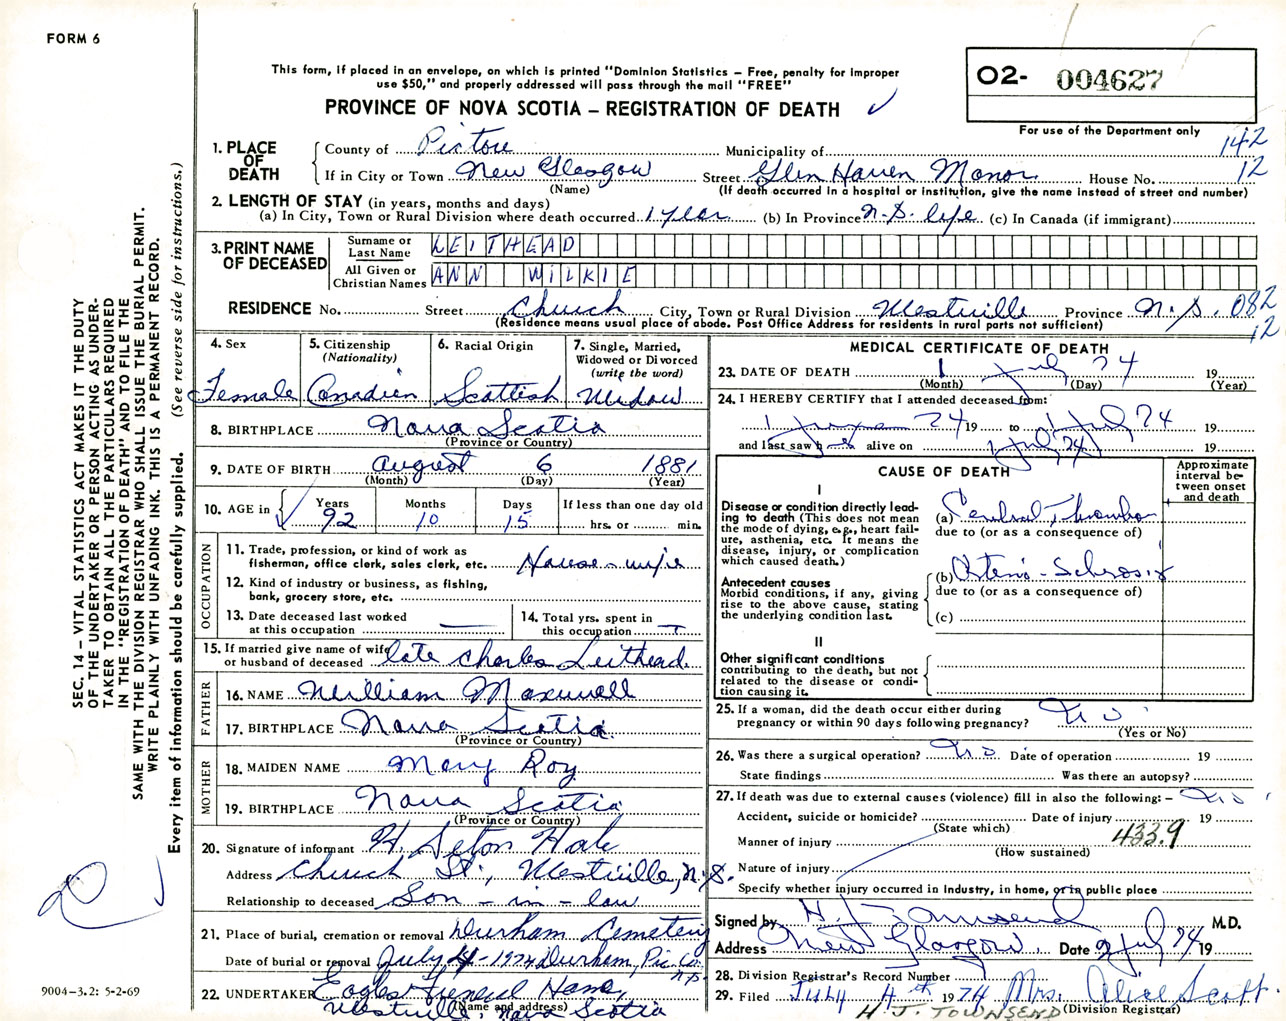 FORM 6
This form, if placed in an envelope, on which is printed "Dominion Statistics – Free, penalty for improper
use $50," and properly addressed will pass through the mail "FREE"
PROVINCE OF NOVA SCOTIA – REGISTRATION OF DEATH
O2- 004627
For use of the Department only
142
12
1. PLACE OF DEATH
County of Pictou Municipality of
If in City or Town New Glasgow Street Glen Haven Manor House No.
(Name) (If death occurred in a hospital or institution, give the name instead of street and number)
2. LENGTH OF STAY (in years, months and days)
(a) In City, Town or Rural Division where death occurred 1 year (b) In Province N.S. life (c) In Canada (if immigrant)
3. PRINT NAME OF DECEASED
Surname or Last Name LEITHEAD
All Given or Christian Names ANN WILKIE
RESIDENCE No. Street Church City, Town or Rural Division Westville Province N.S. 082
12
(Residence means usual place of abode. Post Office Address for residents in rural parts not sufficient)
4. Sex Female
5. Citizenship (Nationality) Canadien
6. Racial Origin Scottish
7. Single, Married, Widowed or Divorced (write the word) Widow
8. BIRTHPLACE Nova Scotia
(Province or Country)
9. DATE OF BIRTH August 6 1881
(Month) (Day) (Year)
10. AGE in Years 92 Months 10 Days 15 If less than one day old
hrs. or min.
OCCUPATION
11. Trade, profession, or kind of work as
fisherman, office clerk, sales clerk, etc. House-wife
12. Kind of industry or business, as fishing,
bank, grocery store, etc.
13. Date deceased last worked
at this occupation
14. Total yrs. spent in
this occupation
15. If married give name of wife
or husband of deceased late Charles Leithead
FATHER
16. NAME William Maxwell
17. BIRTHPLACE Nova Scotia
(Province or Country)
MOTHER
18. MAIDEN NAME Mary Roy
19. BIRTHPLACE Nova Scotia
(Province or Country)
20. Signature of informant H. Seton Hale
Address Church St., Westville, N.S.
Relationship to deceased Son-in-law
21. Place of burial, cremation or removal Durham Cemetery
Date of burial or removal July 4-1974 Durham, Pic. Co.
N.S.
22. UNDERTAKER Eagles Funeral Home,
(Name and address)
Westville, Nova Scotia
MEDICAL CERTIFICATE OF DEATH
23. DATE OF DEATH 1 July 74 19
(Month) (Day) (Year)
24. I HEREBY CERTIFY that I attended deceased from:
74 19 to 1 July 74 19
and last saw h alive on 1 July 74 19
CAUSE OF DEATH
Approximate interval between onset and death
I
Disease or condition directly lead-
ing to death (This does not mean
the mode of dying, e.g., heart fail-
ure, asthenia, etc. It means the
disease, injury, or complication
which caused death.)
(a) Cerebral Thrombo
due to (or as a consequence of)
Antecedent causes
Morbid conditions, if any, giving
rise to the above cause, stating
the underlying condition last.
(b) Arterio-Sclerosis
due to (or as a consequence of)
(c)
II
Other significant conditions
contributing to the death, but not
related to the disease or condi-
tion causing it.
25. If a woman, did the death occur either during
pregnancy or within 90 days following pregnancy? No
(Yes or No)
26. Was there a surgical operation? No Date of operation 19
State findings Was there an autopsy?
27. If death was due to external causes (violence) fill in also the following: – No
Accident, suicide or homicide? Date of injury 19
(State which)
Manner of injury 433.9
(How sustained)
Nature of injury
Specify whether injury occurred in industry, in home, or in public place
Signed by H J Townsend M.D.
Address New Glasgow. Date 2 July 74 19
28. Division Registrar's Record Number
29. Filed July 4th 1974 Mrs. Alice Scott.
(Division Registrar)
H J. TOWNSEND
SEC. 14 – VITAL STATISTICS ACT MAKES IT THE DUTY
OF THE UNDERTAKER OR PERSON ACTING AS UNDER-
TAKER TO OBTAIN ALL THE PARTICULARS REQUIRED
IN THE "REGISTRATION OF DEATH" AND TO FILE THE
SAME WITH THE DIVISION REGISTRAR WHO SHALL ISSUE THE BURIAL PERMIT.
WRITE PLAINLY WITH UNFADING INK. THIS IS A PERMANENT RECORD.
Every item of information should be carefully supplied. (See reverse side for instructions.)
9004-3.2: 5-2-69